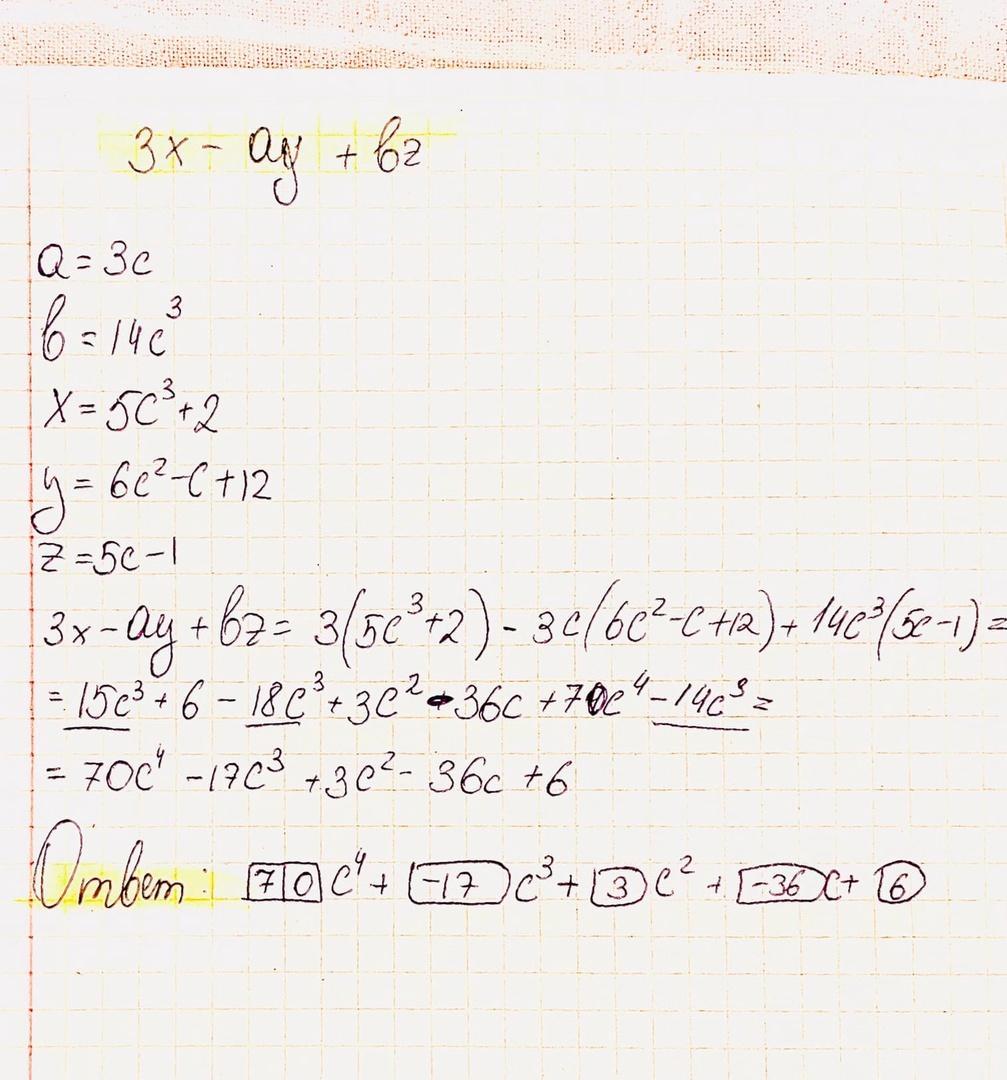 3x - ay + bz
a = 3c
b = 14c³
x = 5c³ + 2
y = 6c² - c + 12
z = 5c - 1
3x - ay + bz = 3(5c³ + 2) - 3c(6c² - c + 12) + 14c³(5c - 1) =
= 15c³ + 6 - 18c³ + 3c² - 36c + 70c⁴ - 14c³ =
= 70c⁴ - 17c³ + 3c² - 36c + 6
Ответ: 70 c⁴ + -17 c³ + 3 c² + -36 c + 6